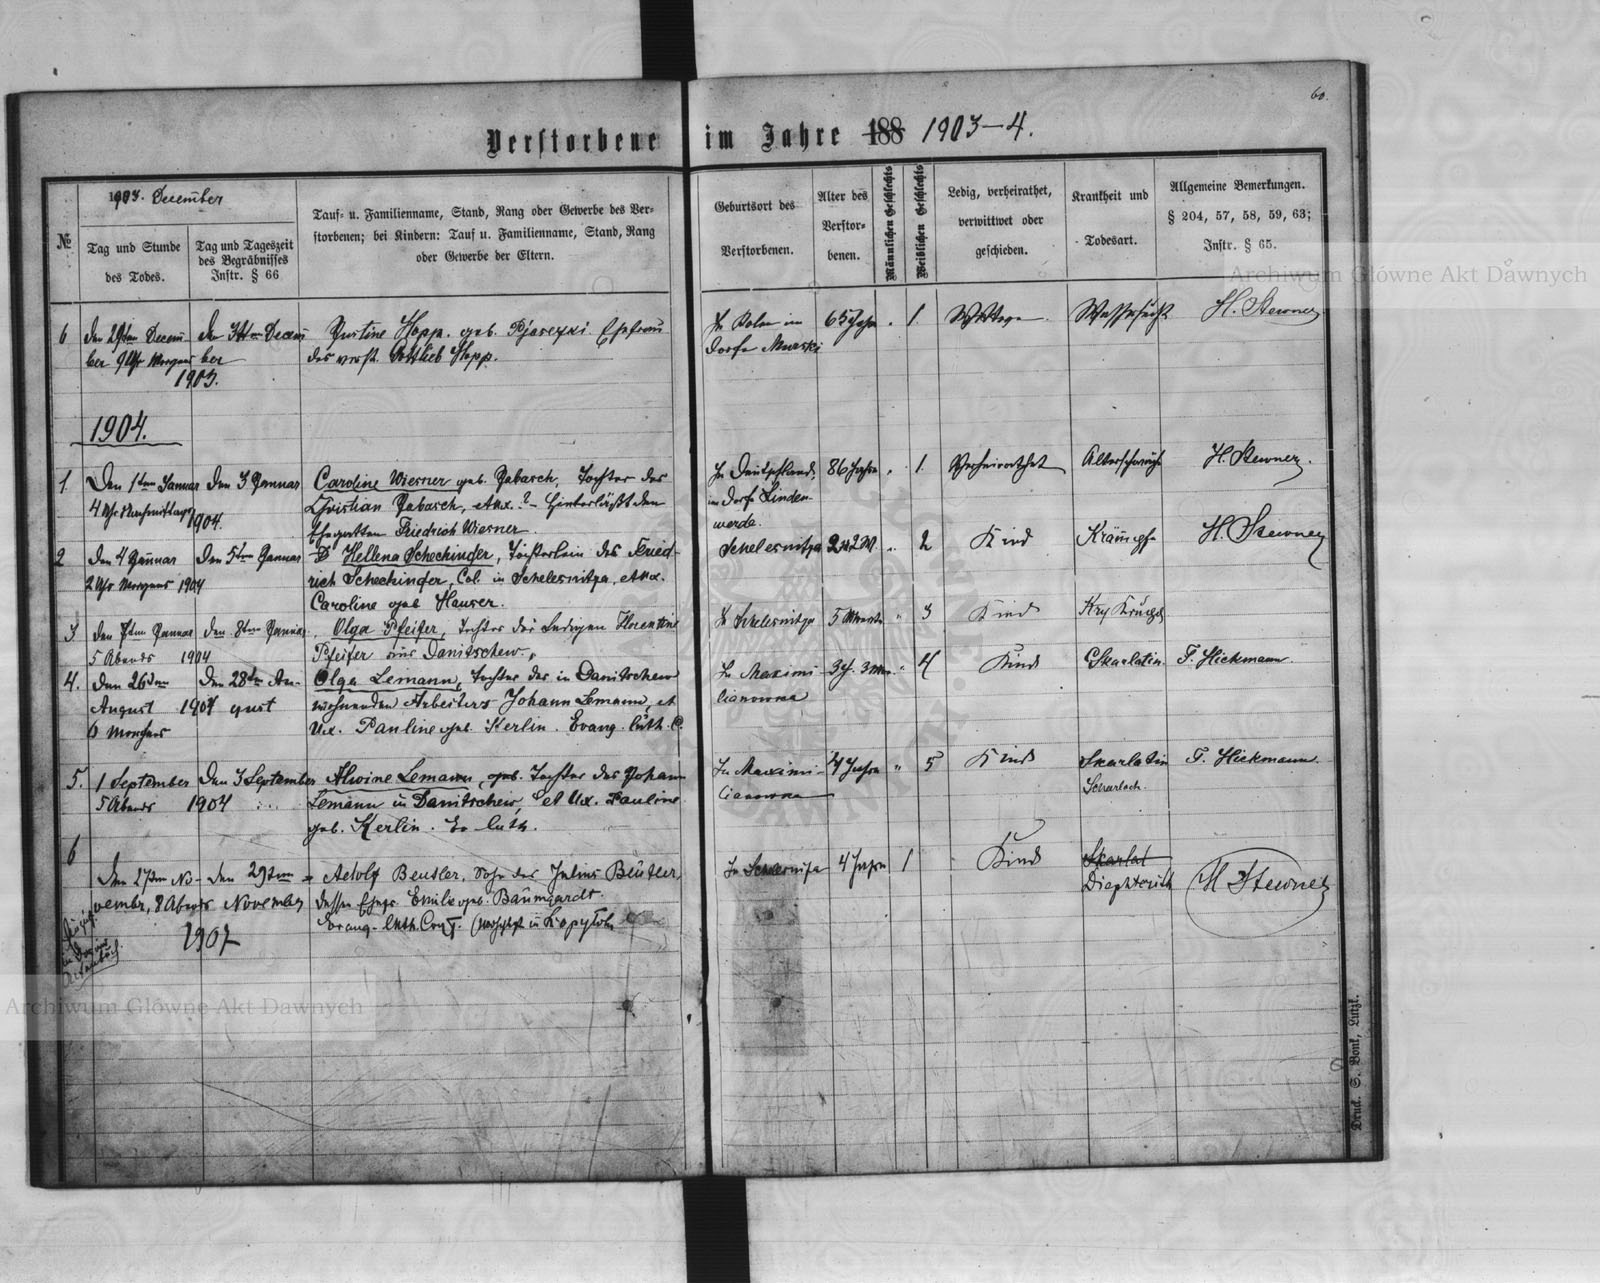 60.
Verstorbene im Jahre 188 1903-4.
1903. December
№
Tag und Stunde
des Todes.
Tag und Tageszeit
des Begräbnisses
Instr. § 66
Tauf- u. Familienname, Stand, Rang oder Gewerbe des Ver-
storbenen; bei Kindern: Tauf u. Familienname, Stand, Rang
oder Gewerbe der Eltern.
Geburtsort des
Verstorbenen.
Alter des
Verstor-
benen.
Männlichen Geschlechts
Weiblichen Geschlechts
Ledig, verheirathet,
verwittwet oder
geschieden.
Krankheit und
Todesart.
Allgemeine Bemerkungen.
§ 204, 57, 58, 59, 63;
Instr. § 65.
6
den 29ten Decem-
ber 9 Uhr Morgens
den Decem
ber
1903.
Justine Hopp. geb. Ehefrau
des verst. Gottlieb Hopp.
In Polen im
Dorfe Murski
65 Jahr
1.
Wittwe
Wassersucht
H. Stewner
1904.
1
Den 1ten Januar
4 Uhr Nachmittags
den 3 Januar
1904.
Caroline Wiesner geb. Jabasch, Tochter des
Christian Jabasch, et ux. ? - hinterläßt den
Ehegatten Friedrich Wiesner
In Deutschland,
im Dorf Linden-
werde.
86 Jahre
1.
Verheirathet
Altersschwäche
H. Stewner.
2
den 4 Januar
2 Uhr Morgens 1904
den 5ten Januar
Hellena Schechinger, Töchterlein des Fried-
rich Schechinger, Col. in Schelesnitza, et ux.
Caroline geb. Hauser.
Schelesnitza
2 M.
2
Kind
Krämpfe
H. Stewner
3
den 7ten Januar
5 Abends 1904
den 8ten Januar
Olga Pfeifer, Tochter der Ledigen Florentine
Pfeifer aus Danitschew.
In Schelesnitza
5 Monate
3
Kind
4.
Den 26ten
August 1904
6 Morgens
Den 28ten Au-
gust
Olga Lemann, Tochter des in Danitschew
wohnenden Arbeiters Johann Lemann, et
Ux. Pauline geb. Kerlin. Evang. Luth. C.
In Maximi-
lianowka
3 J. 3 Mon.
4
Kind
Skarlatin.
F. Hickmann.
5.
1 September
5 Abends 1904
Den 3 September
Alwine Lemann, geb. Tochter des Johann
Lemann in Danitschew, et Ux. Pauline
geb. Kerlin. Ev-luth.
In Maximi-
lianowka
4 Jahre
5
Kind
Skarlatin
Scharlach.
F. Hickmann.
6
Den 27ten No-
vember, 8 Abends
den 29ten
November
1904
Adolf Beutler, Sohn des Julius Beutler,
dessen Ehegt. Emilie geb. Baumgardt.
Evang-Luth. Conf.
4 Jahre
1
Kind
Skarlat
Diephterith
H Stewner
Druck. S. Bonk, Lutzk.
Archiwum Główne Akt Dawnych
Archiwum Główne Akt Dawnych